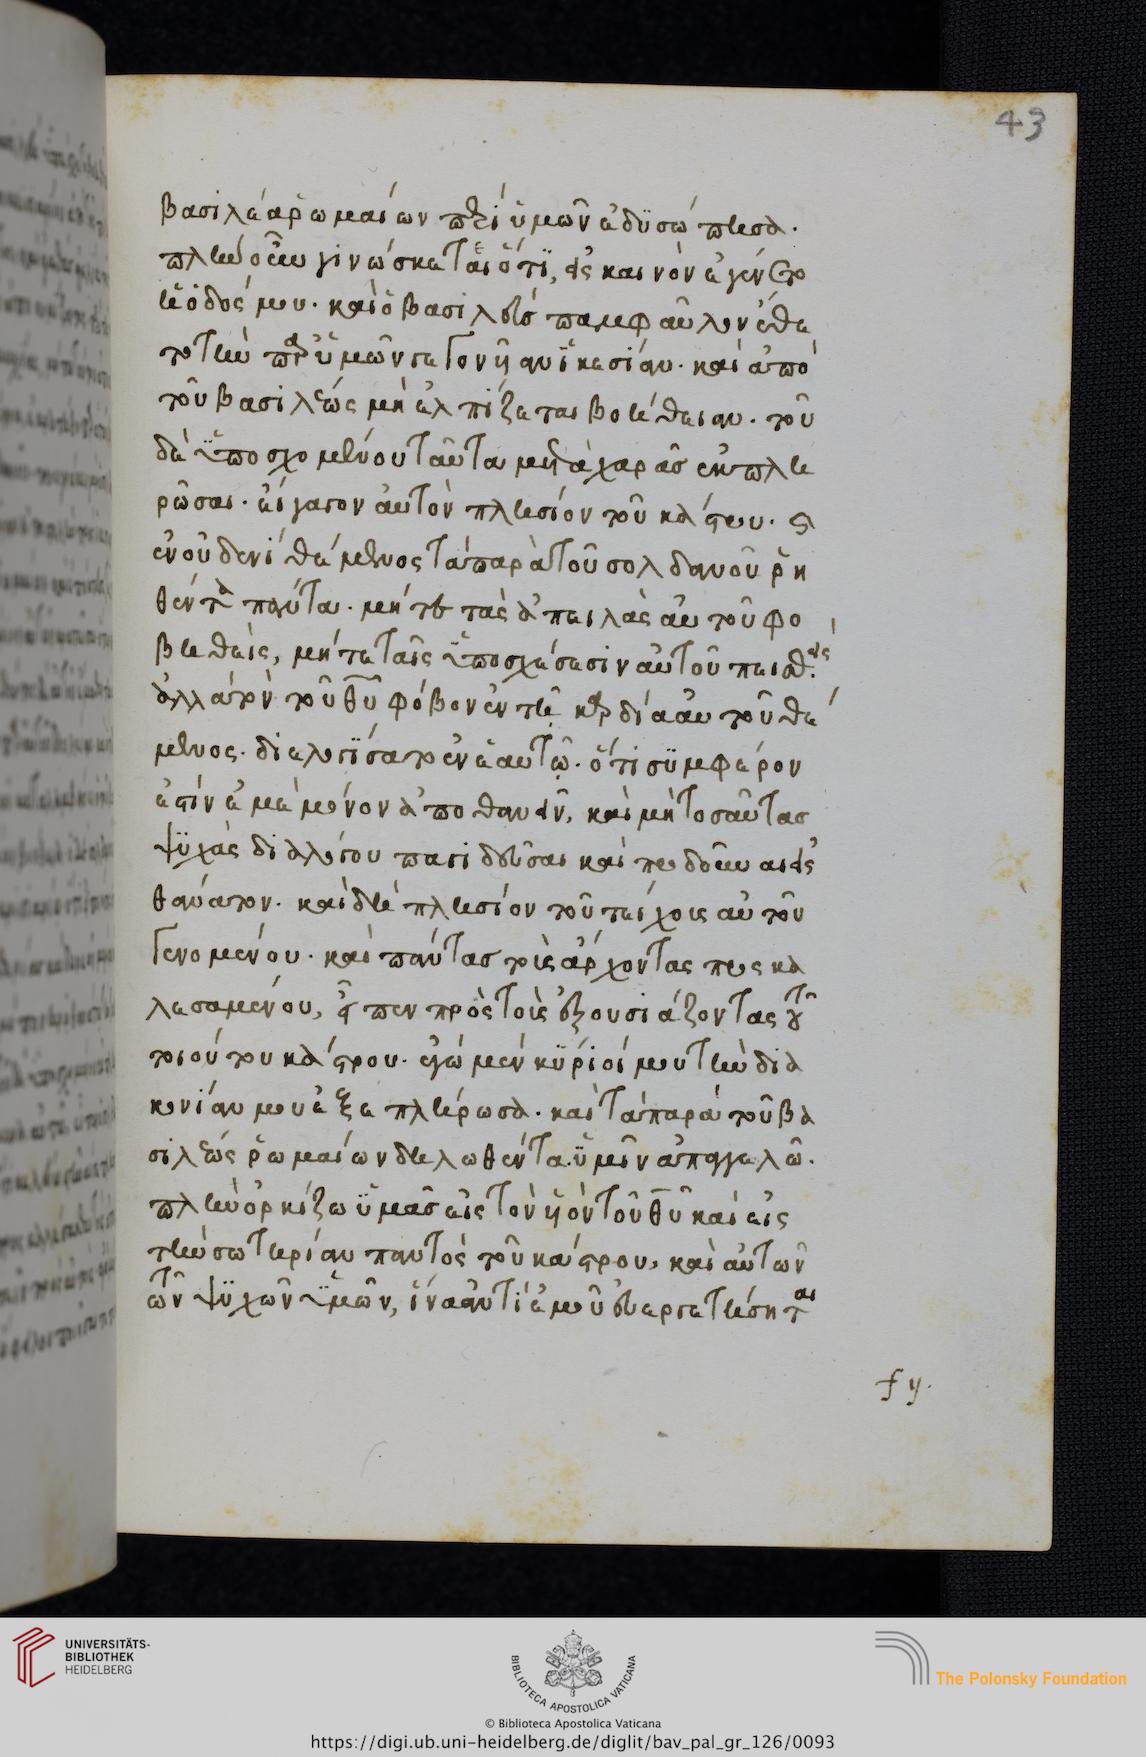 43
βασιλέα ῥωμαίων περὶ ὑμῶν ἐδυσώπησα.
πλὴν οὖν γινώσκεται ὅτι, εἰς καινὸν ἐγένετο
ἡ ὁδός μου. καὶ ὁ βασιλεὺς παμφαῦλον ἔθε
το τὴν παρ ὑμῶν σατον ἱκεσίαν. καὶ ἀπὸ
τοῦ βασιλέως μὴ ἐλπίζεται βοήθειαν. τοῦ
δὲ ὑποσχομένου ταῦτα μετὰ χαρᾶς ἐκπλη
ρῶσαι. εἴγασον αὐτὸν πλησίον τοῦ κάστρου.
ἐν οὐδενὶ θέμενος τὰ παρὰ τοῦ σολδανοῦ ῥη
θέντα πάντα. μήτε τὰς ἀπειλὰς αὐτοῦ φο
βηθείς, μήτε ταῖς ὑποσχέσεσιν αὐτοῦ πεισθείς.
ἀλλὰ τὸν τοῦ θῦ φόβον ἐν τῇ καρδία αὐτοῦ θέ
μενος. διελογίσατο ἐν ἑαυτῷ. ὅτι συμφέρον
ἐστὶν ἐμὲ μόνον ἀποθανεῖν, καὶ μὴ τοσαύτας
ψυχὰς δι ἀλόγου πατιδεῦσαι καὶ προδοῦναι εἰς
θάνατον. καὶ δὴ πλησίον τοῦ τείχοις αὐτοῦ
γενομένου. καὶ πάντας τοὺς ἄρχοντας προσκα
λεσαμένου, εἶπεν πρὸς τοὺς ἐξουσιάζοντας τοῦ
τοιούτου κάστρου. ἐγὼ μὲν κύριοί μου τὴν δια
κονίαν μου ἐξεπλήρωσα. καὶ τὰ παρὰ τοῦ βα
σιλέως ῥωμαίων δηλωθέντα ὑμῖν ἀπαγγελῶ.
πλὴν ὁρκίζω ὑμᾶς εἰς τὸν ὑὸν τοῦ θῦ καὶ εἰς
τὴν σωτηρίαν παντὸς τοῦ κάστρου, καὶ αὐτῶν
τῶν ψυχῶν ὑμῶν, ἵνα ἀντὶ ἐμοῦ εὐεργετήσηται
UNIVERSITÄTS-
BIBLIOTHEK
HEIDELBERG
BIBLIOTECA APOSTOLICA VATICANA
The Polonsky Foundation
© Biblioteca Apostolica Vaticana
https://digi.ub.uni-heidelberg.de/diglit/bav_pal_gr_126/0093